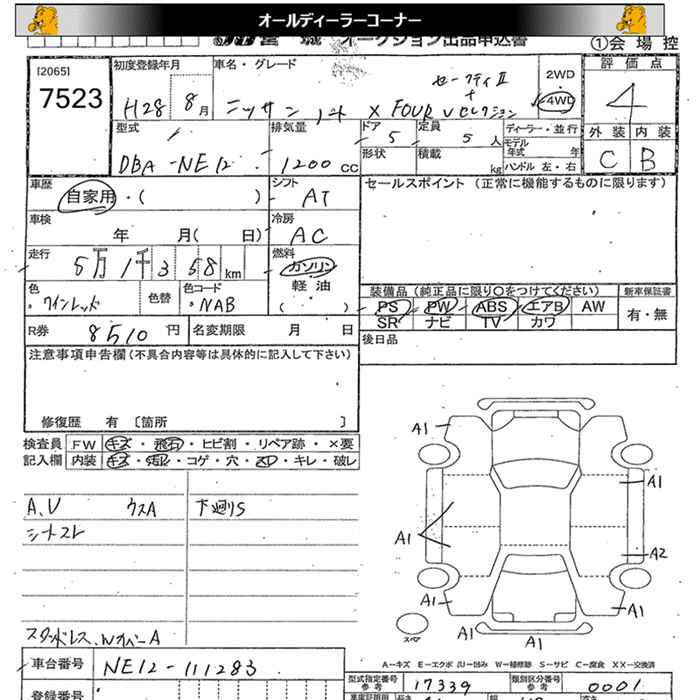 オールディーラーコーナー
オークション出品申込書
①会場控
[2065]
7523
初度登録年月
H28 8月
車名・グレード
セーフティII
+
ニッサン ノート X FOUR Vセレクション
2WD
4WD
評価点
4
外装 内装
C B
型式
DBA-NE12
排気量
1200cc
ドア 5
形状
定員 5人
積載 kg
ディーラー・並行
モデル年式 年
ハンドル 左・右
車歴
自家用・( )
シフト
AT
セールスポイント(正常に機能するものに限ります)
車検
年 月( 日)
冷房
AC
走行
5万1千358km
燃料
ガソリン
軽油
( )
色
ワインレッド
色替
色コード
NAB
装備品(純正品に限り○をつけてください)
PS PW ABS エアB AW
SR ナビ TV カワ
新車保証書
有・無
R券 8510円
名変期限 月 日
後日品
注意事項申告欄(不具合内容等は具体的に記入して下さい)
修復歴 有〔箇所 〕
検査員記入欄
FW キズ・飛石・ヒビ割・リペア跡・×要
内装 キズ・汚れ・コゲ・穴・スレ・キレ・破レ
A、U ウスA
下廻りS
シートスレ
スタッドレス、
A1
A1
A1
A2
A1
A1
A1
A1
スペア
A=キズ E=エクボ U=凹み W=補修跡 S=サビ C=腐食 XX=交換済
車台番号 NE12-111283
登録番号
型式指定番号 参考 17339
類別区分番号 参考 0001